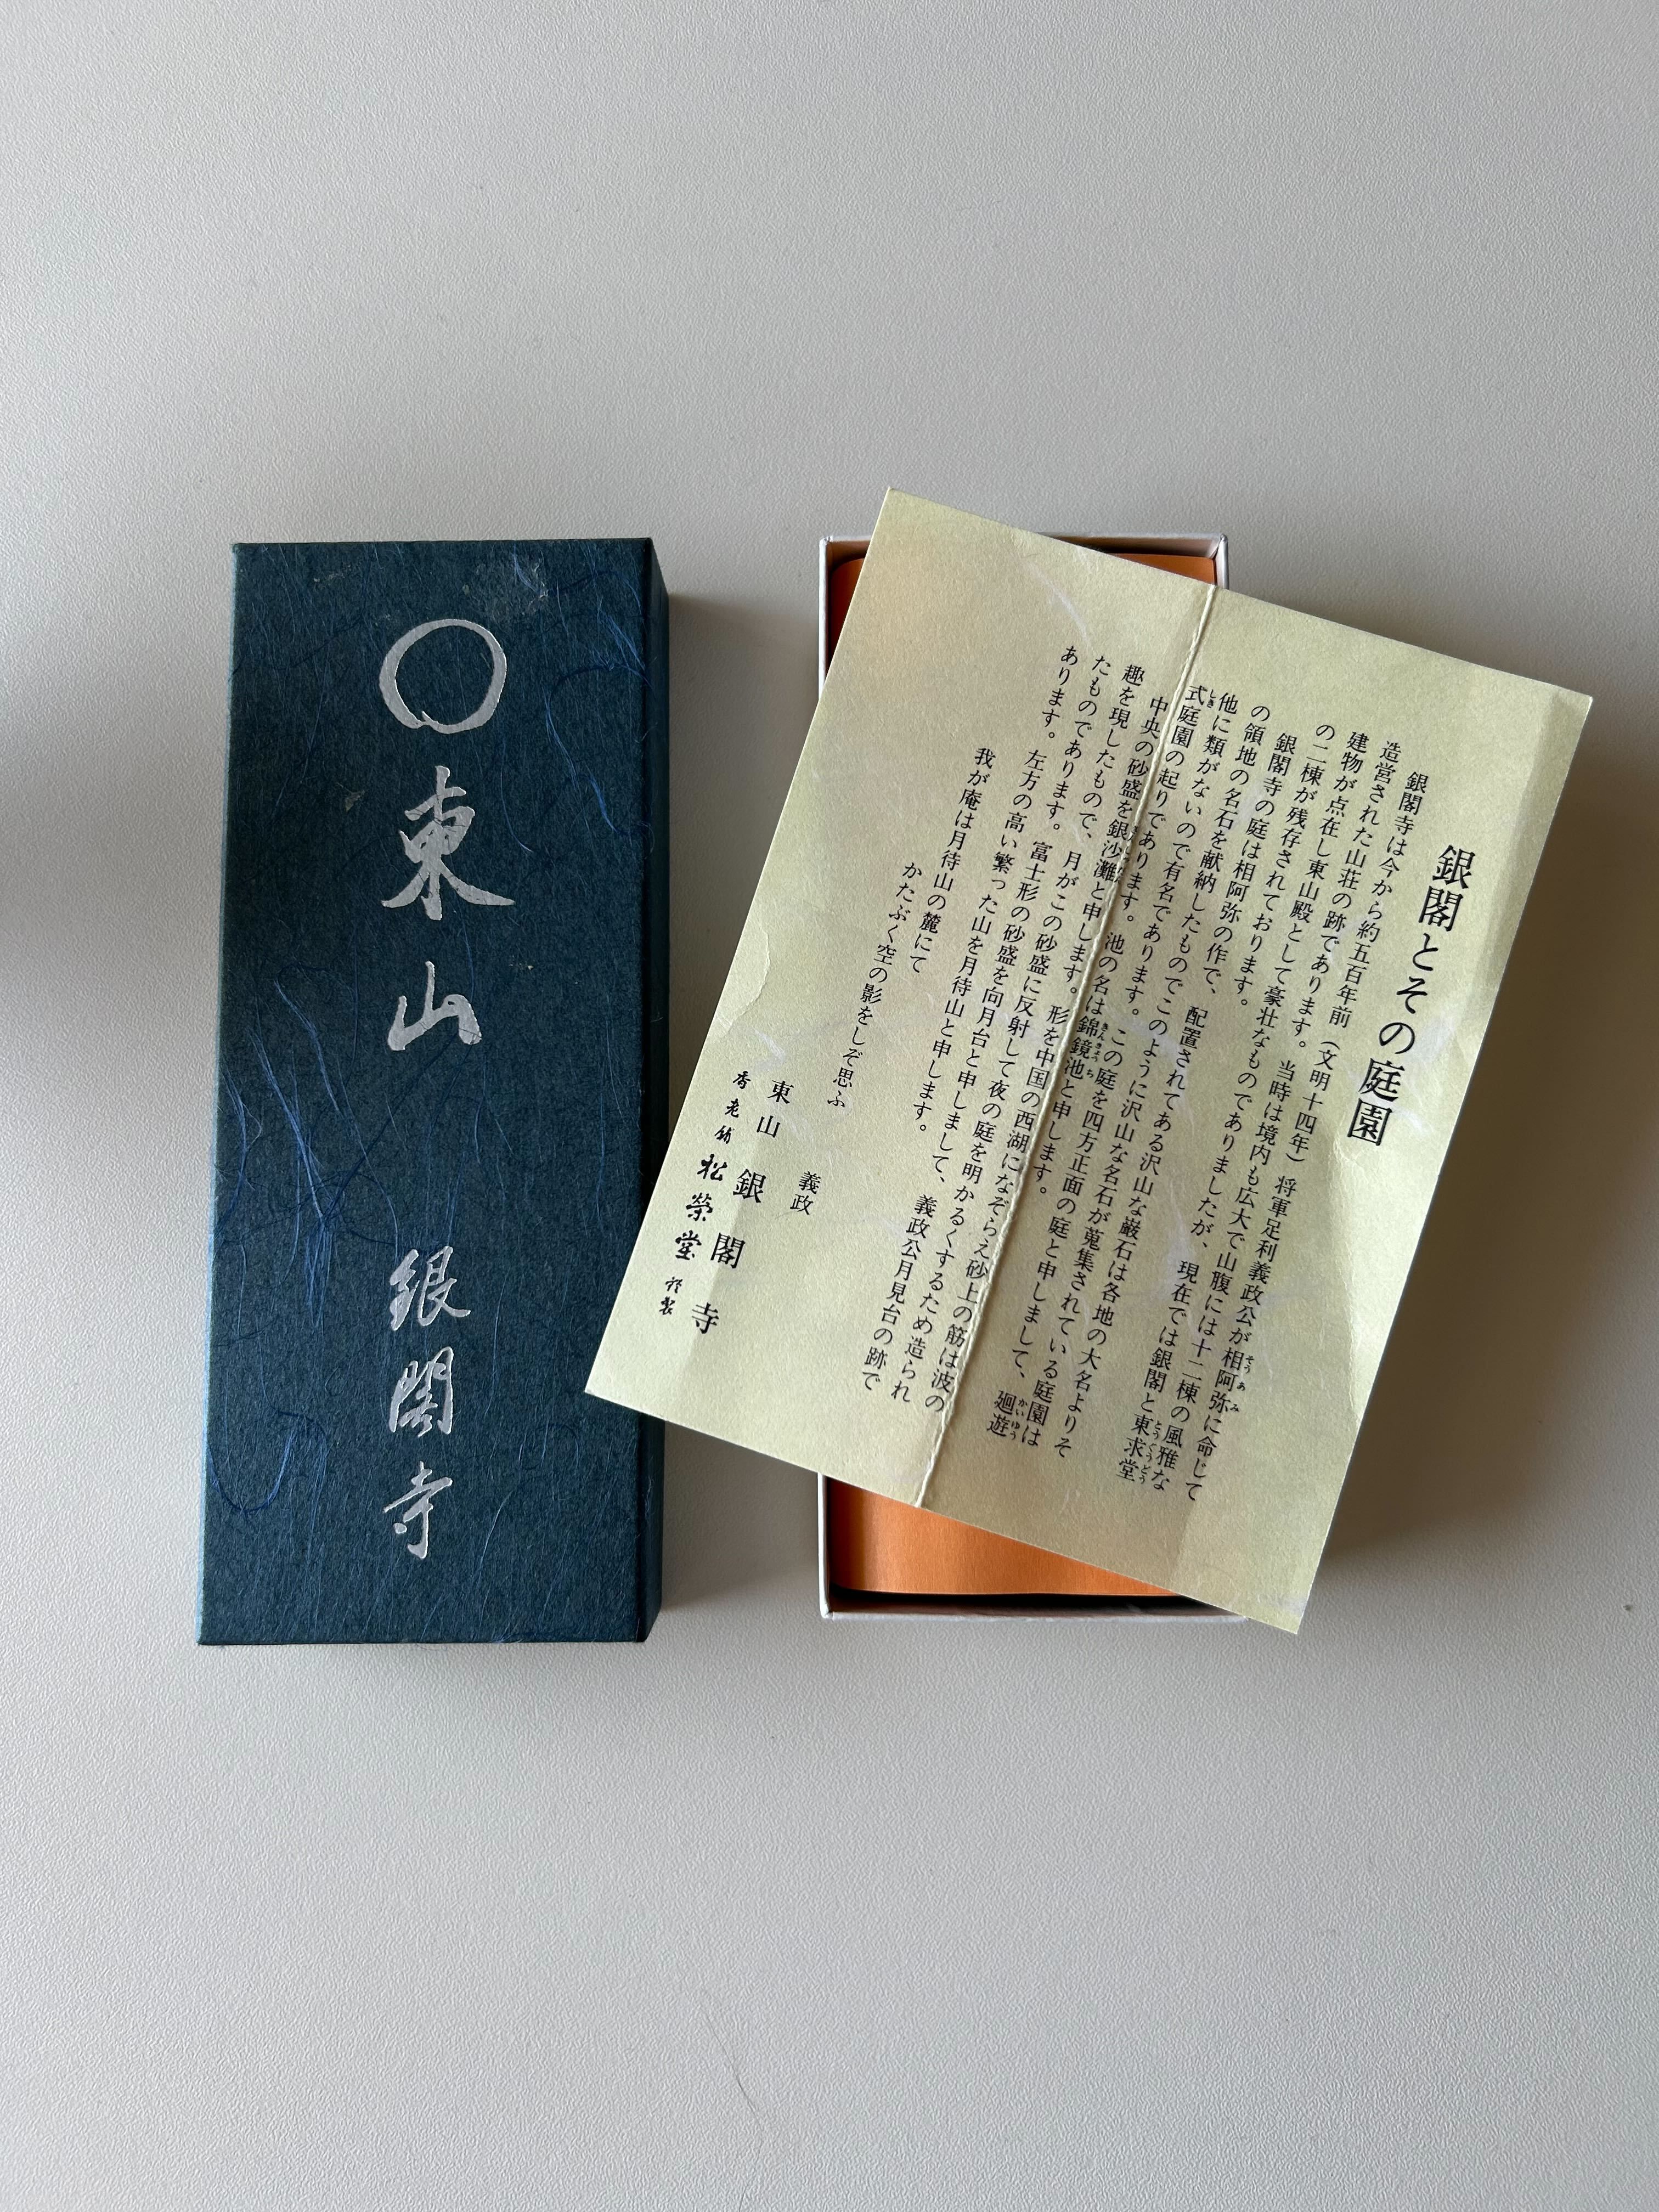 〇東山 銀閣寺
銀閣とその庭園
銀閣寺は今から約五百年前（文明十四年）将軍足利義政公が相阿弥に命じて
造営された山荘の跡であります。当時は境内も広大で山腹には十二棟の風雅な
建物が点在し東山殿として豪壮なものでありましたが、現在では銀閣と東求堂
の二棟が残存されております。
銀閣寺の庭は相阿弥の作で、配置されてある沢山な巌石は各地の大名よりそ
の領地の名石を献納したものでこのように沢山な名石が蒐集されている庭園は
他に類がないので有名であります。この庭を四方正面の庭と申しまして、廻遊
式庭園の起りであります。池の名は錦鏡池と申します。
中央の砂盛を銀沙灘と申します。形を中国の西湖になぞらえ砂上の筋は波の
趣を現したもので、月がこの砂盛に反射して夜の庭を明かるくするため造られ
たものであります。富士形の砂盛を向月台と申しまして、義政公月見台の跡で
あります。左方の高い繁った山を月待山と申します。
我が庵は月待山の麓にて
かたぶく空の影をしぞ思ふ
義政
東山 銀閣寺
香老舗 松榮堂